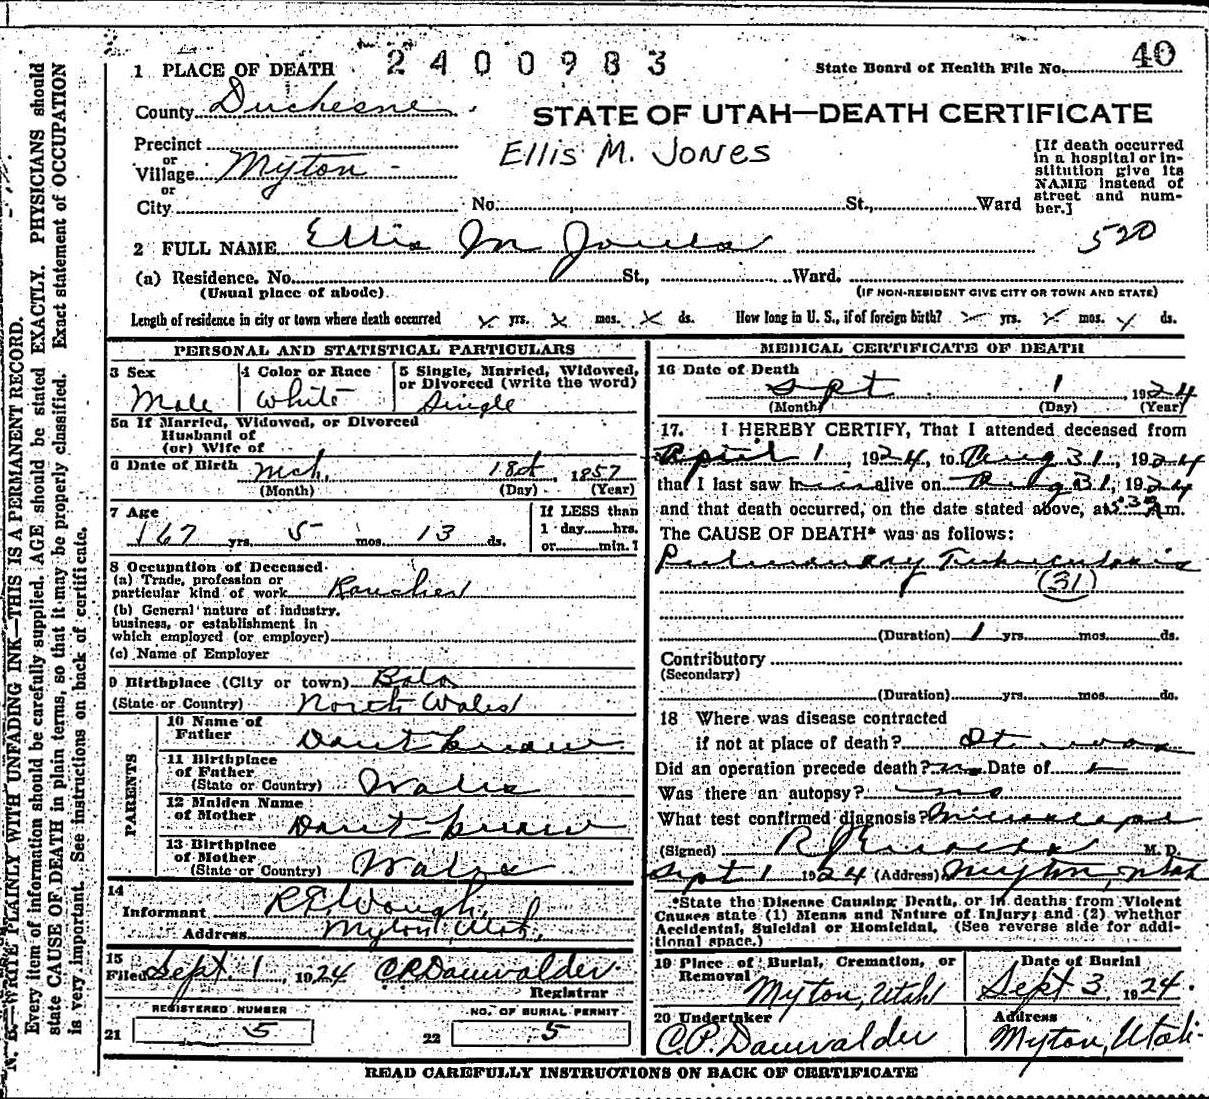 2400983
1 PLACE OF DEATH
State Board of Health File No. 40
County Duchesne
STATE OF UTAH—DEATH CERTIFICATE
Precinct
or
Village Myton
or
City No. St., Ward
Ellis M. Jones
[If death occurred
in a hospital or in-
stitution give its
NAME instead of
street and num-
ber.]
2 FULL NAME Ellis M Jones
520
(a) Residence. No. St., Ward.
(Usual place of abode)
(IF NON-RESIDENT GIVE CITY OR TOWN AND STATE)
Length of residence in city or town where death occurred x yrs. x mos. x ds. How long in U. S., if of foreign birth? x yrs. x mos. x ds.
PERSONAL AND STATISTICAL PARTICULARS
3 Sex
Male
4 Color or Race
White
5 Single, Married, Widowed,
or Divorced (write the word)
Single
5a If Married, Widowed, or Divorced
Husband of
(or) Wife of
6 Date of Birth Mch. 18, 1857
(Month) (Day) (Year)
7 Age
67 yrs. 5 mos. 13 ds.
If LESS than
1 day hrs.
or min.?
8 Occupation of Deceased
(a) Trade, profession or
particular kind of work Rancher
(b) General nature of industry,
business, or establishment in
which employed (or employer)
(c) Name of Employer
9 Birthplace (City or town) Bala
(State or Country) North Wales
PARENTS
10 Name of
Father Dont know
11 Birthplace
of Father
(State or Country) Wales
12 Maiden Name
of Mother Dont know
13 Birthplace
of Mother
(State or Country) Wales
14
Informant R.E. Waugh,
Address Myton, Utah,
15
Filed Sept. 1, 1924 C.P. Dauwalder
Registrar
REGISTERED NUMBER
21 5
NO. OF BURIAL PERMIT
22 5
MEDICAL CERTIFICATE OF DEATH
16 Date of Death
Sept 1 1924
(Month) (Day) (Year)
17. I HEREBY CERTIFY, That I attended deceased from
April 1, 1924, to Aug 31, 1924
that I last saw him alive on Aug 31, 1924
and that death occurred, on the date stated above, at A m.
The CAUSE OF DEATH* was as follows:
Pulmonary Tuberculosis
(31)
(Duration) 1 yrs. mos. ds.
Contributory
(Secondary)
(Duration) yrs. mos. ds.
18 Where was disease contracted
if not at place of death? It was
Did an operation precede death? no Date of
Was there an autopsy? no
What test confirmed diagnosis? Microscope
(Signed) M. D.
Sept 1 1924 (Address) Myton, Utah
*State the Disease Causing Death, or in deaths from Violent
Causes state (1) Means and Nature of Injury; and (2) whether
Accidental, Suicidal or Homicidal. (See reverse side for addi-
tional space.)
19 Place of Burial, Cremation, or
Removal
Myton, Utah
Date of Burial
Sept 3, 1924.
20 Undertaker
C.P. Dauwalder
Address
Myton, Utah.
READ CAREFULLY INSTRUCTIONS ON BACK OF CERTIFICATE
N. B.—WRITE PLAINLY WITH UNFADING INK—THIS IS A PERMANENT RECORD.
Every item of information should be carefully supplied. AGE should be stated EXACTLY. PHYSICIANS should
state CAUSE OF DEATH in plain terms, so that it may be properly classified. Exact statement of OCCUPATION
is very important. See instructions on back of certificate.